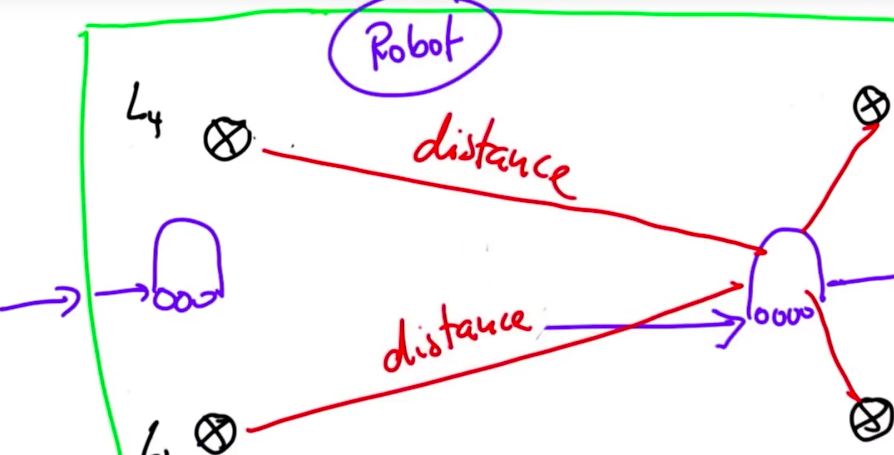 Robot
L4
distance
distance